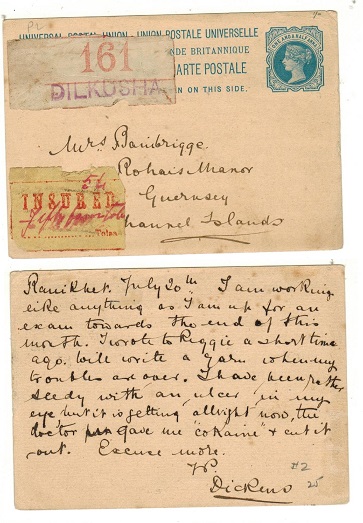 UNIVERSAL POSTAL UNION - UNION POSTALE UNIVERSELLE
NDE BRITANNIQUE
CARTE POSTALE
EN ON THIS SIDE.
ONE AND A HALF ANNA
161
DILKUSHA
Mrs Bainbrigge.
Rohais Manor
Guernsey
Channel Islands
INSURED
Tolas
Ranikhet. July 20th I am working
like anything as I am up for an
exam towards the end of this
month. I wrote to Reggie a short time
ago. Will write a yarn when my
troubles are over. I have been rather
seedy with an ulcer in my
eye but it is getting allright now, the
doctor gave me "cokaine" & cut it
out. Excuse more.
Dickens
#2
25